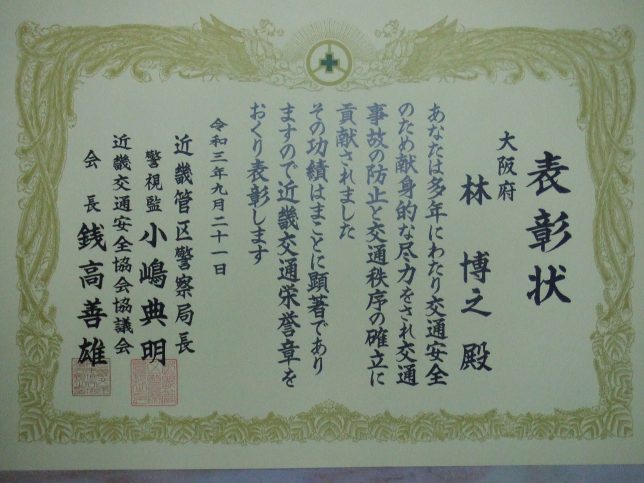 表彰状
大阪府
林博之殿
あなたは多年にわたり交通安全
のため献身的な尽力をされ交通
事故の防止と交通秩序の確立に
貢献されました
その功績はまことに顕著であり
ますので近畿交通栄誉章を
おくり表彰します
令和三年九月二十一日
近畿管区警察局長
警視監 小嶋典明
近畿交通安全協会協議会
会長 銭高善雄